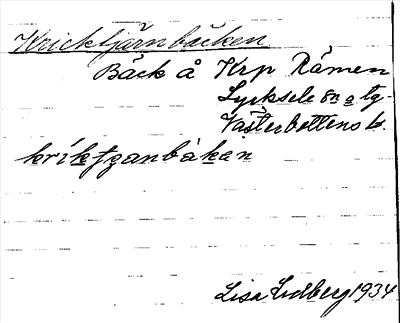 Kricktjärnbäcken
Bäck å Krp Råmen
Lycksele sn o tg.
Västerbottens l.
Lisa Lidberg 1934